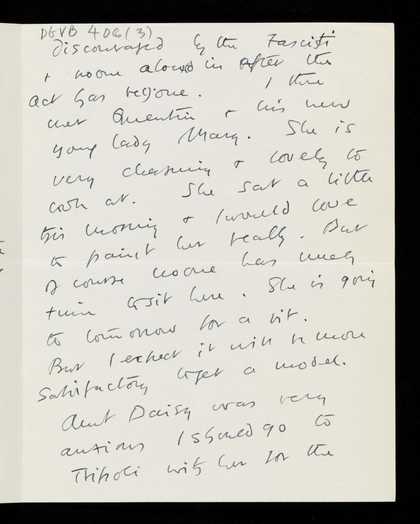 DGVB 406(3)
discouraged by the Fascisti
& noone allowed in after the
act has begone. I then
met Quentin & his new
young lady Mary. She is
very charming & lovely to
look at. She sat a little
this morning & I would love
to paint her really. But
of course noone has much
time to sit here. She is going
to tomorrow for a bit.
But I expect it will be more
satisfactory to get a model.
Aunt Daisy was very
anxious I should go to
Tripoli with her for the